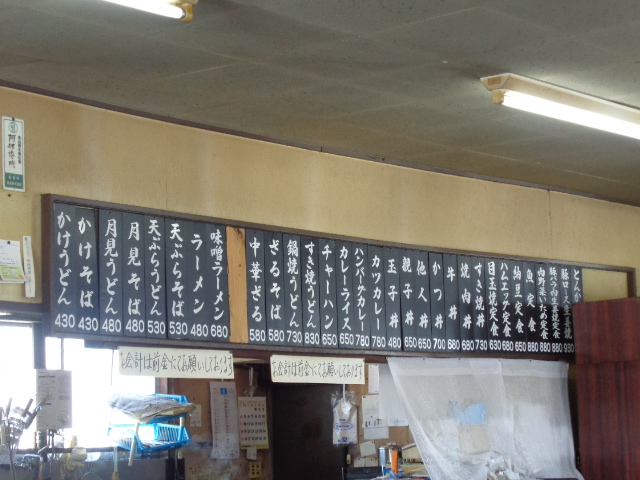 かけうどん 430
かけそば 430
月見うどん 480
月見そば 480
天ぷらうどん 530
天ぷらそば 530
ラーメン 480
味噌ラーメン 680
中華ざる 580
ざるそば 580
鍋焼うどん 730
すき焼うどん 830
チャーハン 650
カレーライス 650
ハンバーグカレー 780
カツカレー 780
玉子丼 480
親子丼 650
他人丼 650
かつ丼 700
牛丼 680
焼肉丼 680
すき焼丼 730
目玉焼定食 630
ハムエッグ定食 650
納豆定食 650
魚定食 880
肉野菜いため定食 880
豚バラ肉生姜焼定食 880
豚ロース生姜焼 930
お会計は前金にてお願いしております
お会計は前金にてお願いしております